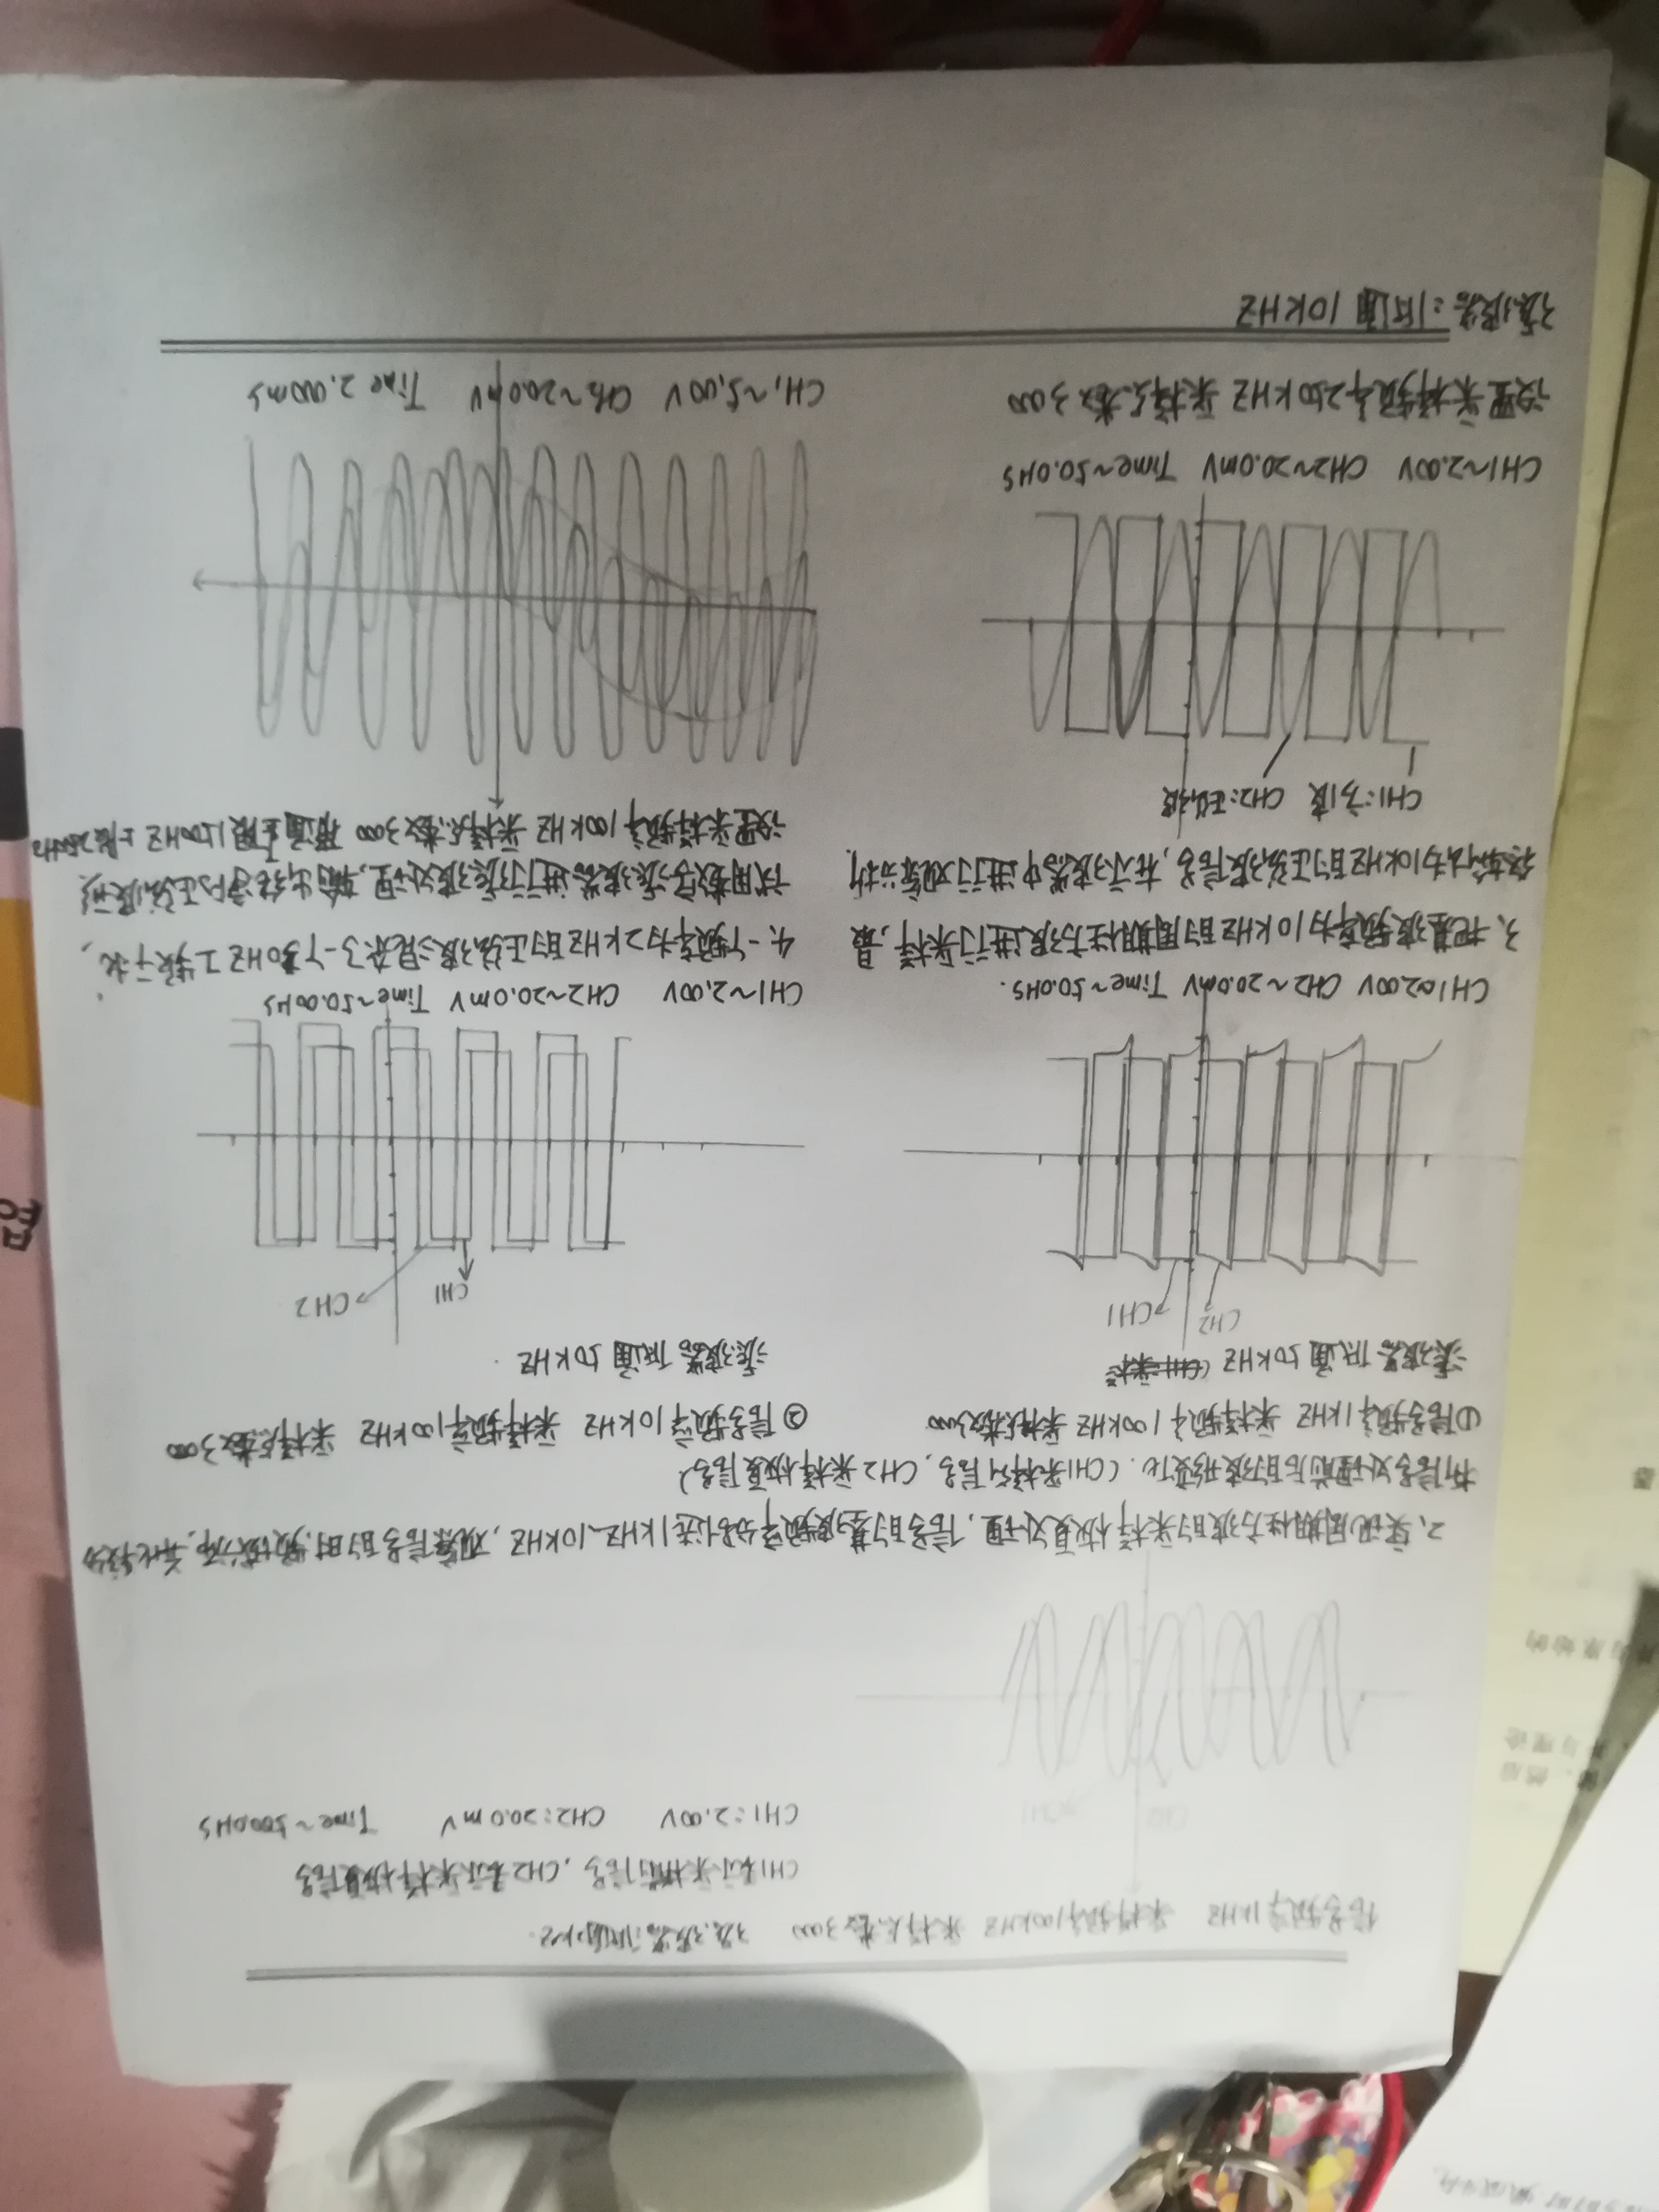 信号频率1KHZ 采样频率100KHZ 采样点数3000 滤波器低通2KHZ.
CH1表示采样前信号,CH2表示采样恢复信号
CH1:2.00V CH2:20.0mV Time~500.0μs
CH2 CH1
2、实现周期性方波的采样恢复处理,信号的基波频率分别选1KHZ、10KHZ,观察信号的时、频域分布,并比较分
析信号处理前后的波形变化.(CH1采样前信号,CH2采样恢复信号)
①信号频率1KHZ 采样频率100KHZ 采样点数3000
滤波器低通50KHZ
CH2 CH1
CH1~2.00V CH2~20.0mV Time~50.0μs.
②信号频率10KHZ 采样频率100KHZ 采样点数3000
滤波器低通50KHZ.
CH1 CH2
CH1~2.00V CH2~20.0mV Time~50.00μs
3、把基波频率为10KHZ的周期性方波进行采样,最
终输出为10KHZ的正弦波信号,在示波器中进行观察分析.
CH1:方波 CH2:正弦波
CH1~2.00V CH2~20.0mV Time~50.0μs
设置采样频率250KHZ 采样点数3000
滤波器:低通10KHZ
4、一个频率为2KHZ的正弦波混杂了一个50HZ工频干扰,
试用数字滤波器进行滤波处理,输出纯净的正弦波形
设置采样频率100KHZ 采样点数3000 带通下限1500HZ 上限2500HZ
CH1~5.00V CH2~20.0mV Time 2.000ms
然后
与理论
原始的
器